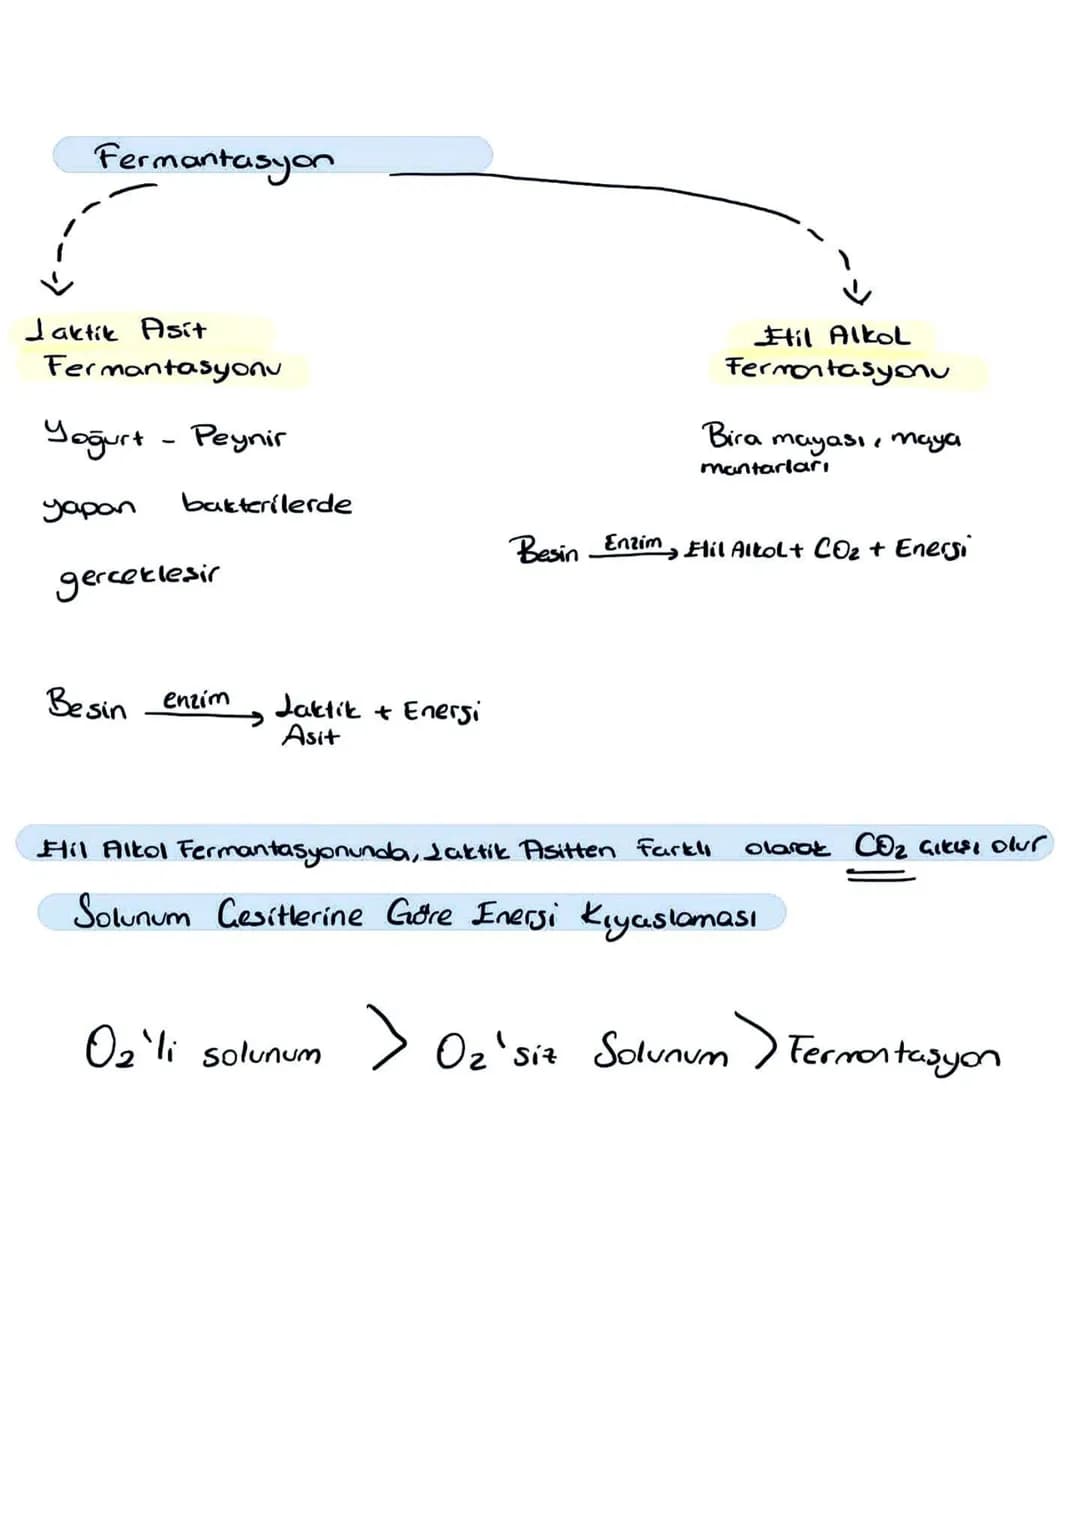 Fermantasyon
Laktik Asit
Fermantasyonu
Yoğurt - Peynir
yapan bakterilerde
gerceklesir
Besin enzim Laktik + Enerji
Asit
Etil Alkol
Fermantasyonu
Bira mayası, maya
mantarları
Besin Enzim Etil Alkol + CO₂ + Enerji
Etil Alkol Fermantasyonunda, Laktik Asitten Farklı olarak CO₂ Gıkışı olur
Solunum Cesitlerine Göre Enerji Kıyaslaması
O₂'li solunum > O₂'siz Solunum > Fermantasyon